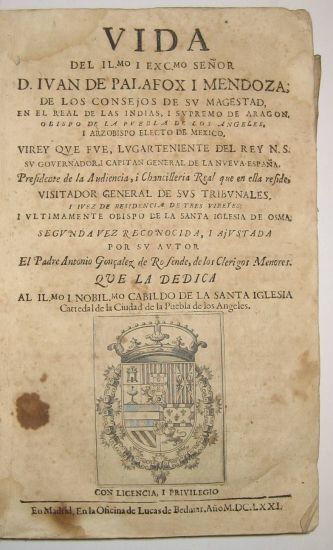 VIDA
DEL IL.MO I EXC.MO SEÑOR
D. IVAN DE PALAFOX I MENDOZA;
DE LOS CONSEJOS DE SV MAGESTAD,
EN EL REAL DE LAS INDIAS, I SVPREMO DE ARAGON,
OBISPO DE LA PVEBLA DE LOS ANGELES,
I ARZOBISPO ELECTO DE MEXICO,
VIREY QVE FVE, LVGARTENIENTE DEL REY N.S.
SV GOVERNADOR, I CAPITAN GENERAL DE LA NVEVA-ESPAÑA,
Presidente de la Audiencia, i Chancilleria Real que en ella reside,
VISITADOR GENERAL DE SVS TRIBVNALES,
I IVEZ DE RESIDENCIA DE TRES VIREYES;
I VLTIMAMENTE OBISPO DE LA SANTA IGLESIA DE OSMA;
SEGVNDA VEZ RECONOCIDA, I AJVSTADA
POR SV AVTOR
El Padre Antonio Gonçalez de Rosende, de los Clerigos Menores.
QVE LA DEDICA
AL IL.MO I NOBIL.MO CABILDO DE LA SANTA IGLESIA
Catredal de la Ciudad de la Puebla de los Angeles.
CON LICENCIA, I PRIVILEGIO
En Madrid, En la Oficina de Lucas de Bedmar. Año M.DC.LXXI.